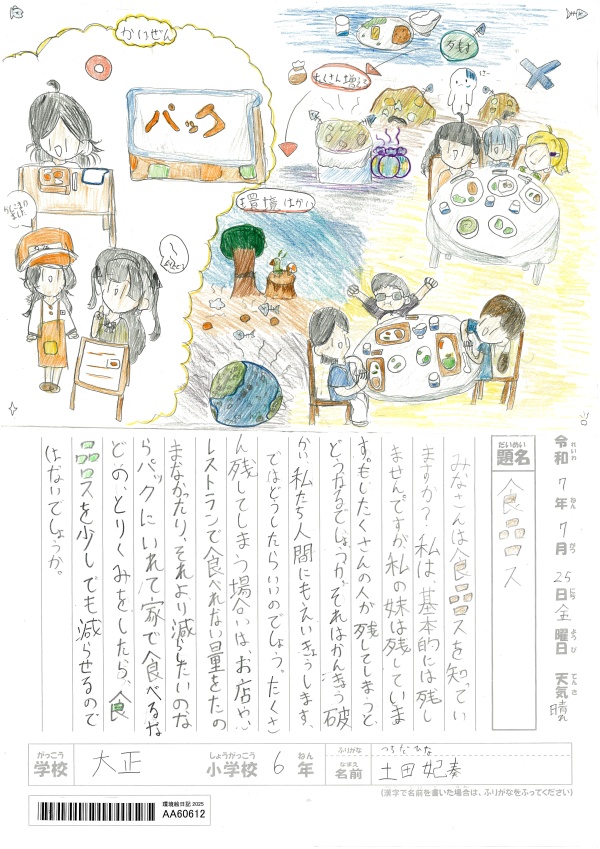 かいぜん
パック
たくさん増えて
残す
環境はかい
令和7年7月25日金曜日 天気晴れ
れいわ ねん がつ にち ようび てんき
だいめい
題名
食品ロス
みなさんは食品ロスを知ってい
ますか?私は、基本的には残し
ませんですが、私の妹は残していま
す。もしたくさんの人が残してしまうと
どうなるでしょうか。それはかんきょう破
かい私たち人間にもえいきょうします。
ではどうしたらいいのでしょう。たくさ
ん残してしまう場合は、お店や、
レストランで食べれない量をたの
まなかったり、それより減らしたいのな
らパックにいれて家で食べるな
どの、とりくみをしたら、食
品ロスを少しでも減らせるので
はないでしょうか。
がっこう しょうがっこう ねん
学校 大正 小学校 6年
ふりがな つちだ ひな
なまえ
名前 土田妃奏
(漢字で名前を書いた場合は、ふりがなをふってください)
環境絵日記 2025
AA60612